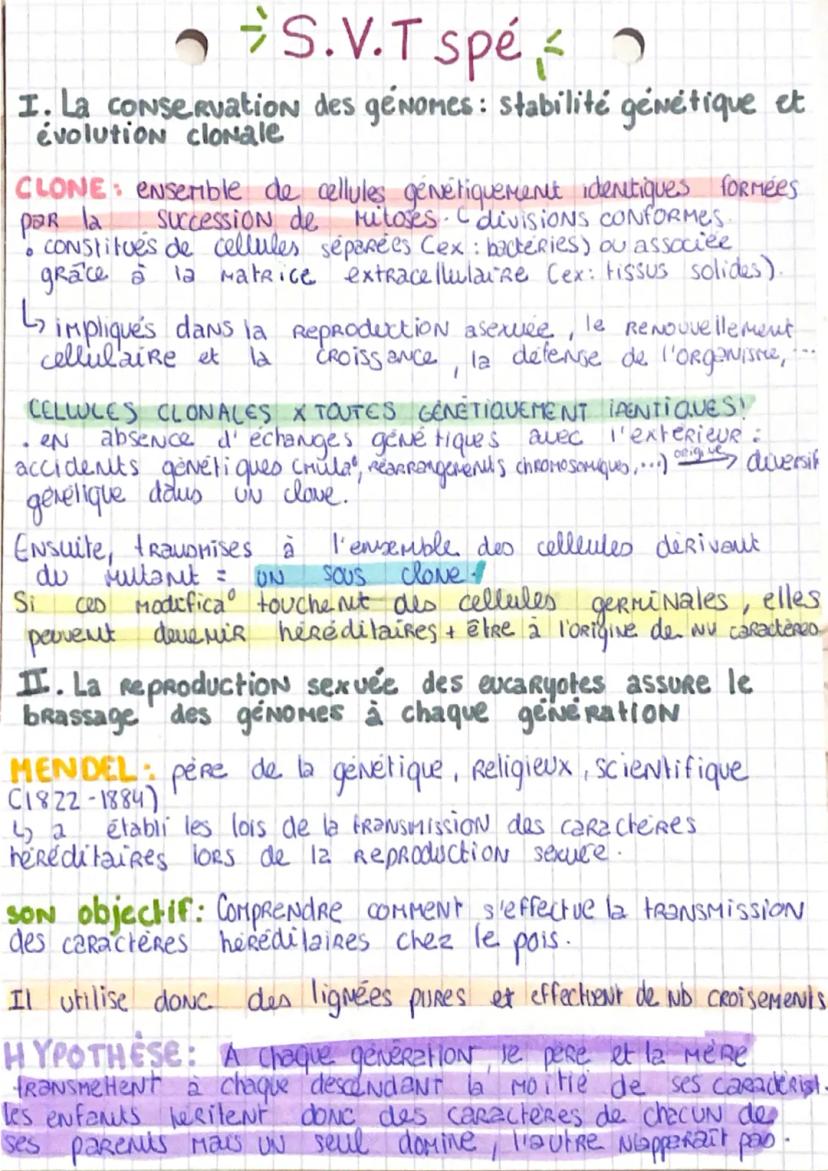 S.V.T spé
I. La conservation des génomes : stabilité génétique et
évolution clonale
CLONE : ensemble de cellules génétiquement identiques formées
par la succession de mitoses. ( divisions conformes.
• constitués de cellules séparées (ex : bactéries) ou associée
grâce à la matrice extracellulaire (ex: tissus solides).
↳ impliqués dans la reproduction asexuée, le renouvellement
cellulaire et la croissance, la défense de l'organisme, ...
CELLULES CLONALES X TOUTES GÉNÉTIQUEMENT IDENTIQUES !
. en absence d'échanges génétiques avec l'extérieur :
accidents génétiques (muta°, réarrangements chromosomiques, ...) origine → diversit
génétique dans un clone.
Ensuite, transmises à l'ensemble des cellules dérivant
du mutant = un sous clone !
Si ces modifica° touchent des cellules germinales, elles
peuvent devenir héréditaires + être à l'origine de nv caractères
II. La reproduction sexuée des eucaryotes assure le
brassage des génomes à chaque génération
MENDEL : père de la génétique, religieux, scientifique
(1822-1884)
↳ a établi les lois de la transmission des caractères
héréditaires lors de la reproduction sexuée.
son objectif : Comprendre comment s'effectue la transmission
des caractères héréditaires chez le pois.
Il utilise donc des lignées pures et effectuent de nb croisements
HYPOTHÈSE : A chaque génération, le père et la mère
transmettent à chaque descendant la moitié de ses caractérist.
les enfants héritent donc des caractères de chacun de
ses parents mais un seul domine, l'autre n'apparaît pas.